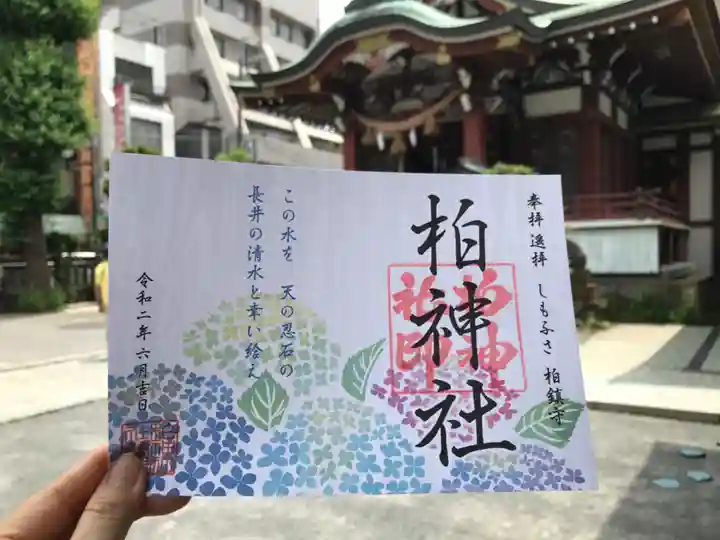 奉拝 遥拝 しもふさ 柏鎮守
柏神社
柏神社印
この水を 天の忍石の
長井の清水と幸い給え
令和二年六月吉日